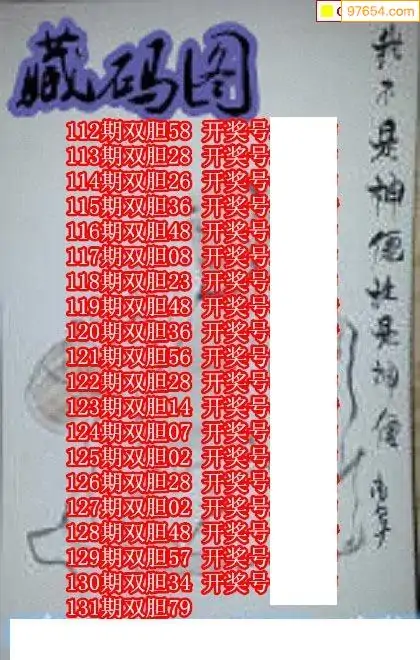 97654.com
藏码图
112期双胆58 开奖号
113期双胆28 开奖号
114期双胆26 开奖号
115期双胆36 开奖号
116期双胆48 开奖号
117期双胆08 开奖号
118期双胆23 开奖号
119期双胆48 开奖号
120期双胆36 开奖号
121期双胆56 开奖号
122期双胆28 开奖号
123期双胆14 开奖号
124期双胆07 开奖号
125期双胆02 开奖号
126期双胆28 开奖号
127期双胆02 开奖号
128期双胆48 开奖号
129期双胆57 开奖号
130期双胆34 开奖号
131期双胆79
我不是神
是神